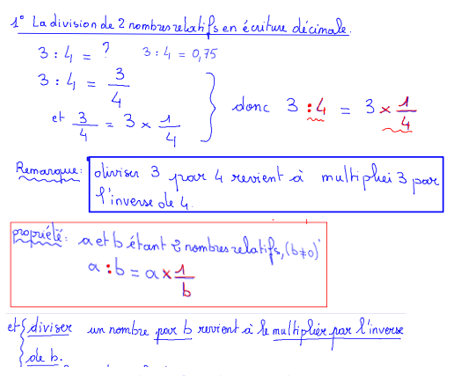 1° La division de 2 nombres relatifs en écriture décimale.
3 : 4 = ? 3 : 4 = 0,75
3 : 4 = 3/4
et 3/4 = 3 × 1/4 } donc 3 : 4 = 3 × 1/4
Remarque: diviser 3 par 4 revient à multiplier 3 par
l'inverse de 4.
propriété: a et b étant 2 nombres relatifs, (b≠0)
a : b = a × 1/b
et { diviser un nombre par b revient à le multiplier par l'inverse
de b.